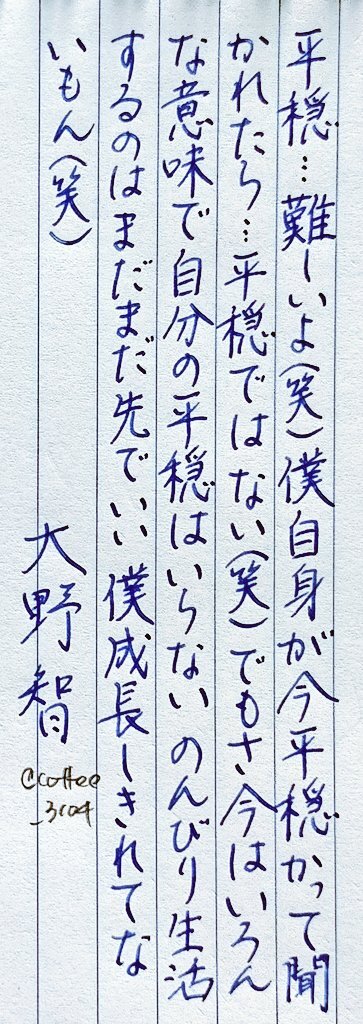 平穏…難しいよ(笑)僕自身が今平穏かって聞
かれたら…平穏ではない(笑)でもさ今はいろん
な意味で自分の平穏はいらない のんびり生活
するのはまだまだ先でいい 僕成長しきれてな
いもん(笑)
大野智
@coffee
_3104